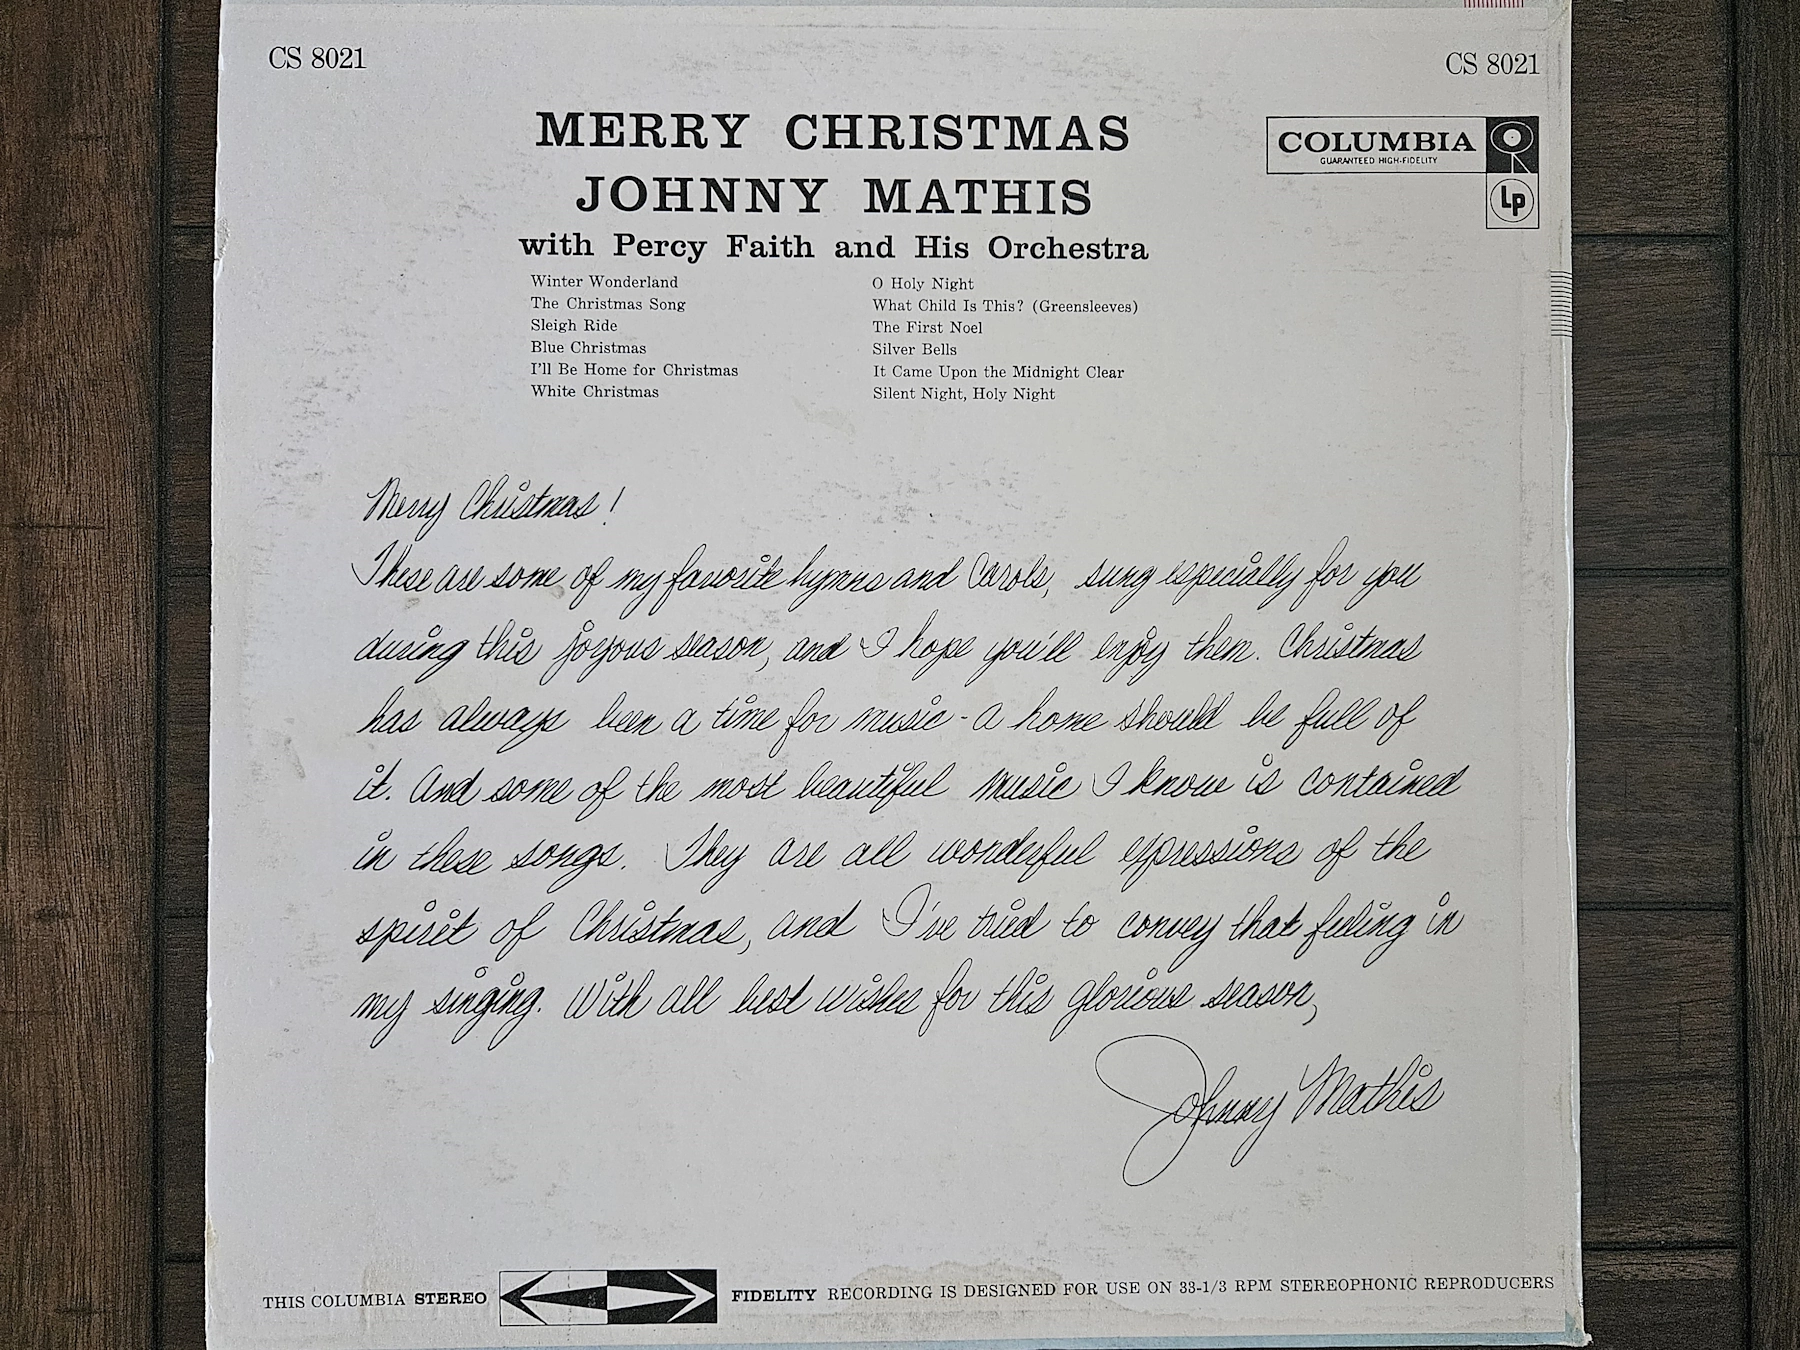 CS 8021
CS 8021
MERRY CHRISTMAS
JOHNNY MATHIS
with Percy Faith and His Orchestra
COLUMBIA
GUARANTEED HIGH-FIDELITY
Lp
Winter Wonderland
The Christmas Song
Sleigh Ride
Blue Christmas
I'll Be Home for Christmas
White Christmas
O Holy Night
What Child Is This? (Greensleeves)
The First Noel
Silver Bells
It Came Upon the Midnight Clear
Silent Night, Holy Night
Merry Christmas!
These are some of my favorite hymns and Carols, sung especially for you
during this joyous season, and I hope you'll enjoy them. Christmas
has always been a time for music - a home should be full of
it. And some of the most beautiful music I know is contained
in these songs. They are all wonderful expressions of the
spirit of Christmas, and I've tried to convey that feeling in
my singing. With all best wishes for this glorious season,
Johnny Mathis
THIS COLUMBIA STEREO FIDELITY RECORDING IS DESIGNED FOR USE ON 33-1/3 RPM STEREOPHONIC REPRODUCERS